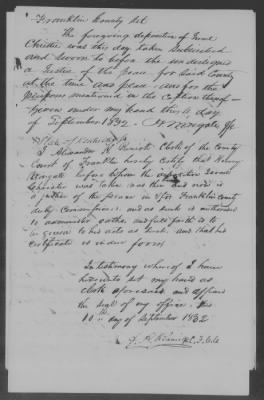 Franklin County Sct
The foregoing deposition of Israel
Christie was this day taken subscribed
and sworn to before the undersigned
a Justice of the peace for said County
at the time and place and for the
purpose mentioned in the Caption thereof
Given under my hand this day
of September 1832
State of Kentucky
I Alexander Clerk of the County
Court of Franklin hereby certify that
before whom the deposition Israel
Christie was taken was then and now is
a Justice of the peace in & for Franklin County
duly Commissioned and as such is authorised
to administer oaths and full faith is to
be given to his acts as such and that his
certificate is in due form
In testimony whereof I have
hereunto set my hand as
clerk aforesaid and affixed
the seal of my office this
10th day of September 1832